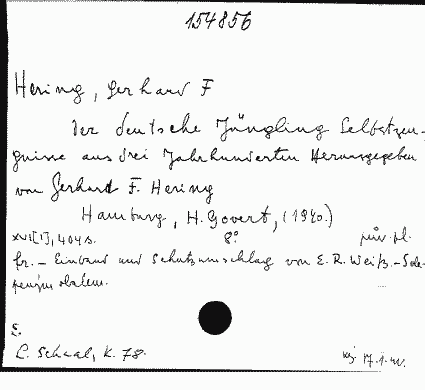 154856
Hering, Gerhard F
Der deutsche Jüngling Selbstzeu-
gnisse aus drei Jahrhunderten Herausgegeben
von Gerhard F. Hering
Hamburg, H. Govert, (1940.)
XVI[1], 404 s. 8°
fr. - Einband und Schutzumschlag von E. R. Weiß. -
L. Schaal, K. 78.
17.1.